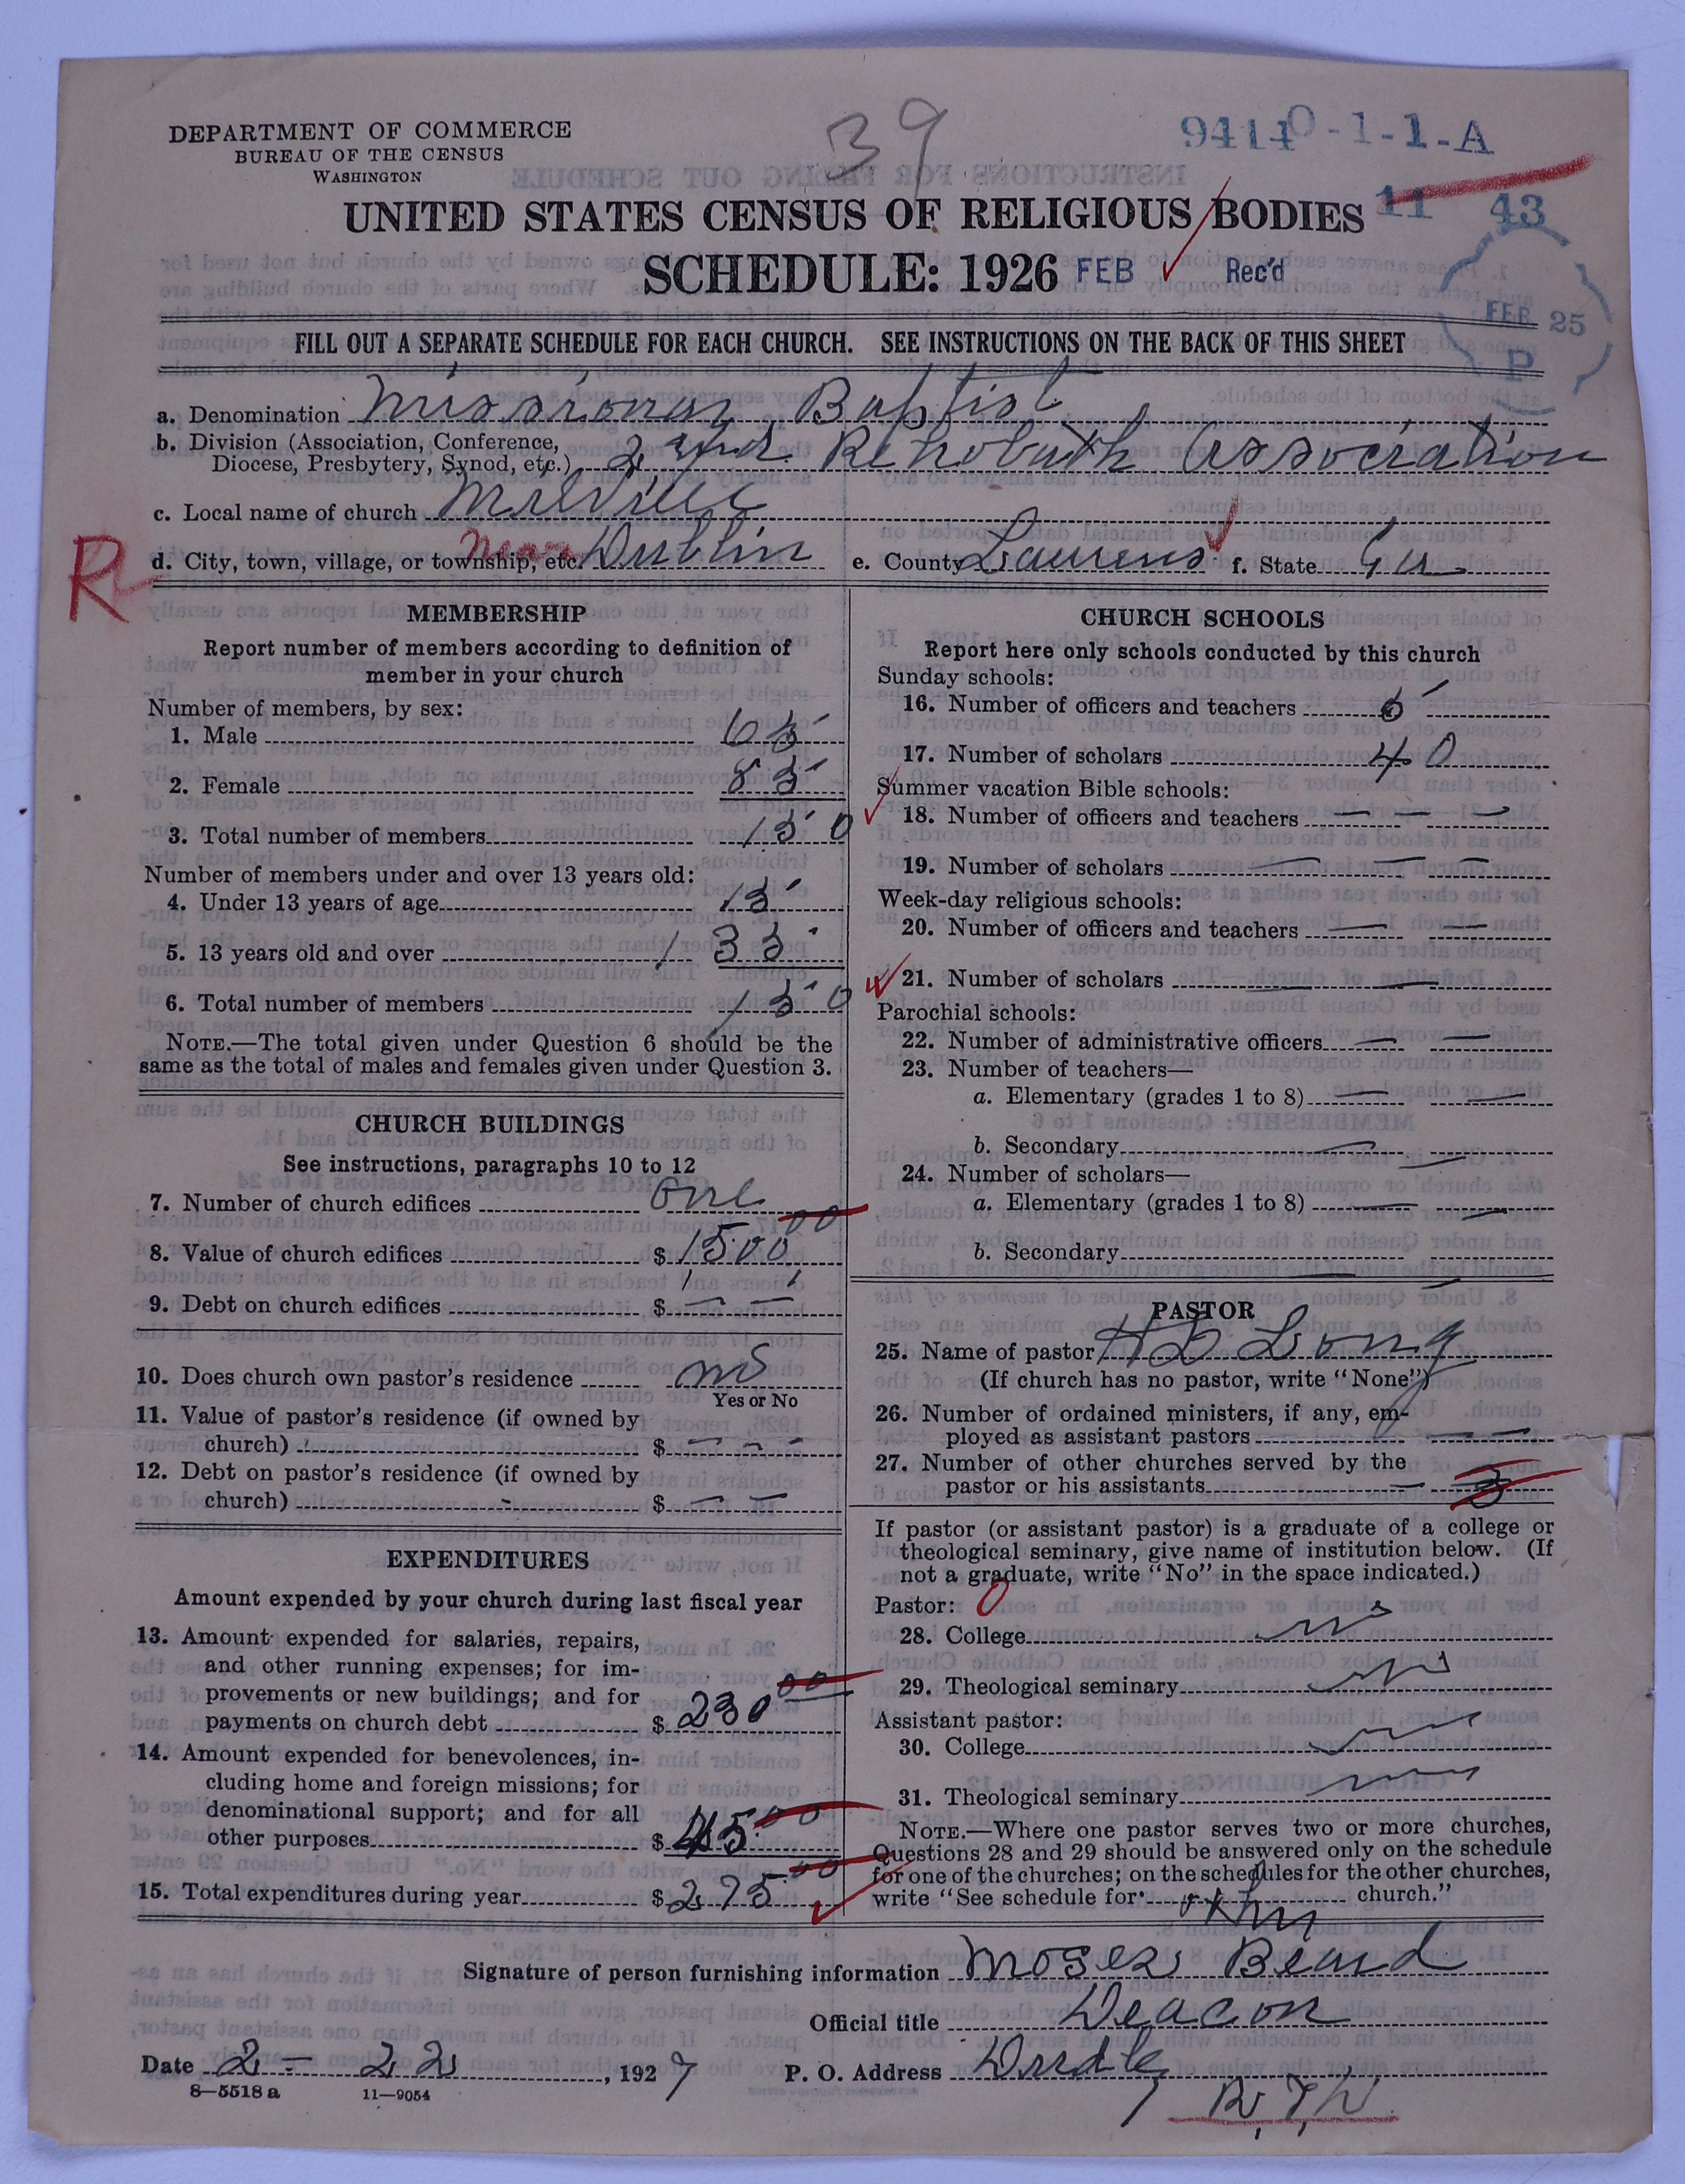 DEPARTMENT OF COMMERCE
BUREAU OF THE CENSUS
WASHINGTON
39
9414 0-1-1-A
UNITED STATES CENSUS OF RELIGIOUS BODIES
11 43
SCHEDULE: 1926
FEB Rec'd
FEB 25
P
FILL OUT A SEPARATE SCHEDULE FOR EACH CHURCH. SEE INSTRUCTIONS ON THE BACK OF THIS SHEET
a. Denomination Missionary Baptist
b. Division (Association, Conference,
Diocese, Presbytery, Synod, etc.) 2nd. Rehobath Association
c. Local name of church Milville
R
d. City, town, village, or township, etc. near Dublin e. County Laurens f. State Ga
MEMBERSHIP
Report number of members according to definition of
member in your church
Number of members, by sex:
1. Male 65
2. Female 85
3. Total number of members 150
Number of members under and over 13 years old:
4. Under 13 years of age 15
5. 13 years old and over 135
6. Total number of members 150
NOTE.—The total given under Question 6 should be the
same as the total of males and females given under Question 3.
CHURCH BUILDINGS
See instructions, paragraphs 10 to 12
7. Number of church edifices one
8. Value of church edifices $ 1500 00
9. Debt on church edifices $ — —
10. Does church own pastor's residence no
Yes or No
11. Value of pastor's residence (if owned by
church) $ — — —
12. Debt on pastor's residence (if owned by
church) $ — —
EXPENDITURES
Amount expended by your church during last fiscal year
13. Amount expended for salaries, repairs,
and other running expenses; for im-
provements or new buildings; and for
payments on church debt $ 230 00
14. Amount expended for benevolences, in-
cluding home and foreign missions; for
denominational support; and for all
other purposes $ 45 00
15. Total expenditures during year $ 275 00
CHURCH SCHOOLS
Report here only schools conducted by this church
Sunday schools:
16. Number of officers and teachers
17. Number of scholars 40
Summer vacation Bible schools:
18. Number of officers and teachers — — —
19. Number of scholars — — —
Week-day religious schools:
20. Number of officers and teachers — —
21. Number of scholars — —
Parochial schools:
22. Number of administrative officers — —
23. Number of teachers—
a. Elementary (grades 1 to 8) — —
b. Secondary —
24. Number of scholars—
a. Elementary (grades 1 to 8) — —
b. Secondary
PASTOR
25. Name of pastor H D Long
(If church has no pastor, write "None")
26. Number of ordained ministers, if any, em-
ployed as assistant pastors — —
27. Number of other churches served by the
pastor or his assistants — 3
If pastor (or assistant pastor) is a graduate of a college or
theological seminary, give name of institution below. (If
not a graduate, write "No" in the space indicated.)
Pastor: 0
28. College no
29. Theological seminary no
Assistant pastor:
30. College
31. Theological seminary
NOTE.—Where one pastor serves two or more churches,
Questions 28 and 29 should be answered only on the schedule
for one of the churches; on the schedules for the other churches,
write "See schedule for church."
Signature of person furnishing information Moses Beard
Official title Deacon
Date 2 - 22, 1927 P. O. Address
8—5518 a 11—9054